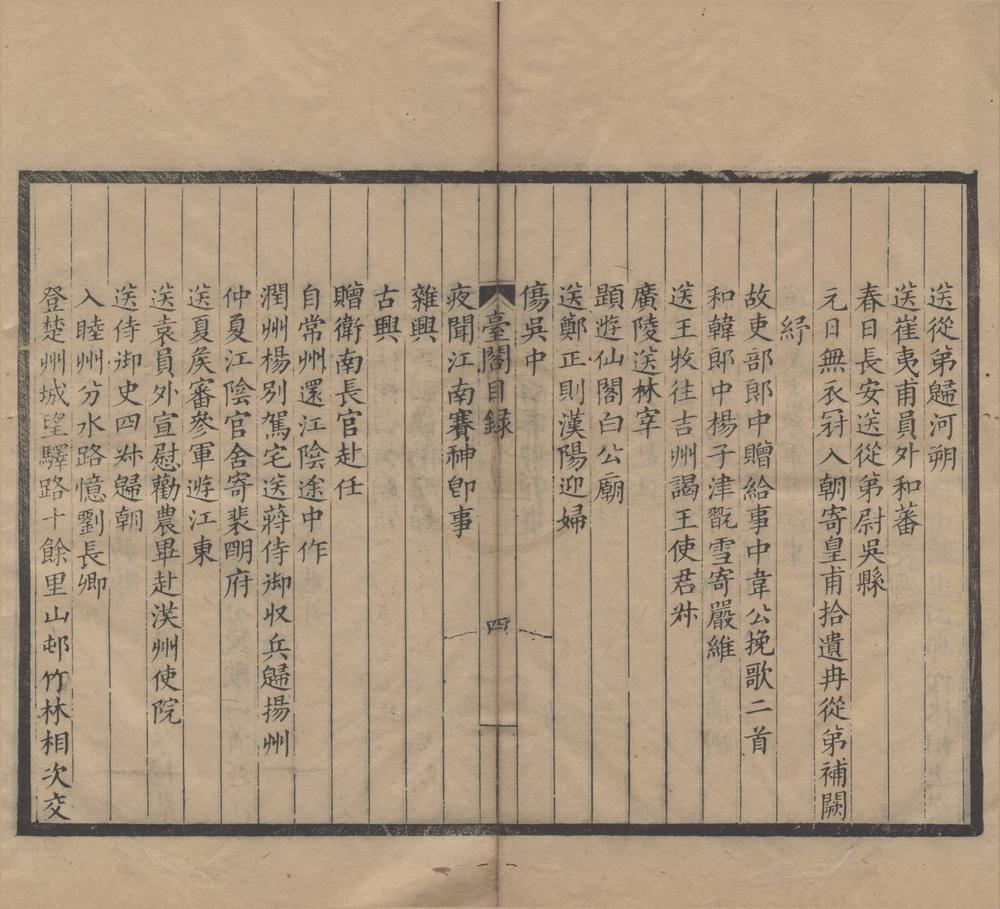 送從第歸河朔
送崔夷甫員外和蕃
春日長安送從第尉吳縣
元日無衣冠入朝寄皇甫拾遺冉從第補闕
紓
故吏部郎中贈給事中韋公挽歌二首
和韓郎中楊子津翫雪寄嚴維
送王牧往吉州謁王使君叔
廣陵送林宰
題遊仙閣白公廟
送鄭正則漢陽迎婦
傷吳中
臺閣目録
四
夜聞江南賽神卽事
雜興
古興
贈衛南長官赴任
自常州還江陰途中作
潤州楊別駕宅送蔣侍御収兵歸揚州
仲夏江陰官舍寄裴明府
送夏矦審參軍遊江東
送袁員外宣慰勸農畢赴洪州使院
送侍御史四叔歸朝
入睦州分水路憶劉長卿
登楚州城望驛路十餘里山邨竹林相次交